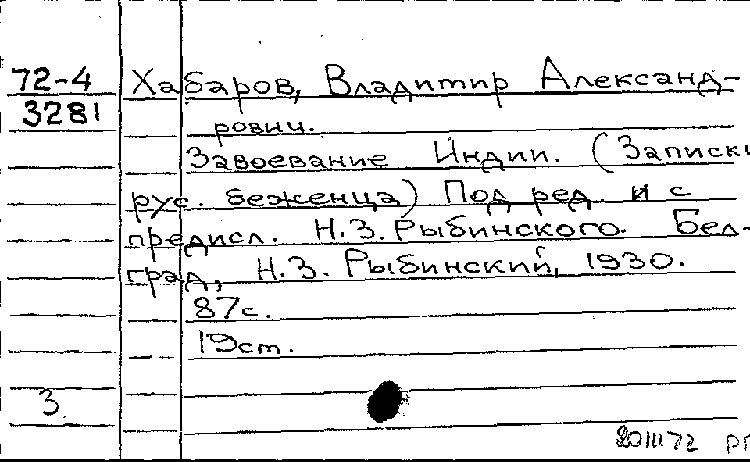 72-4 Хабаров, Владимир Александ-
3281
рович.
Завоевание Индии. (Записки
рус. беженца) Под ред. и с
предисл. Н.З. Рыбинского. Бел-
град, Н.З. Рыбинский, 1930.
87с.
19см.
3
20III72 РГ